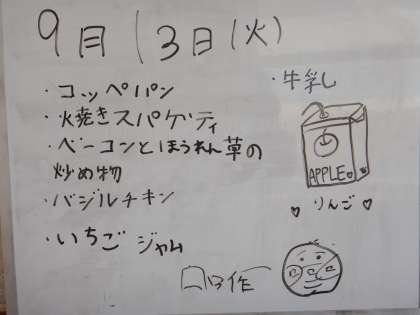 9月13日(火)
・コッペパン
・火焼きスパゲティ
・ベーコンとほうれん草の
炒め物
・バジルチキン
・いちごジャム
・牛乳
APPLE
りんご
作